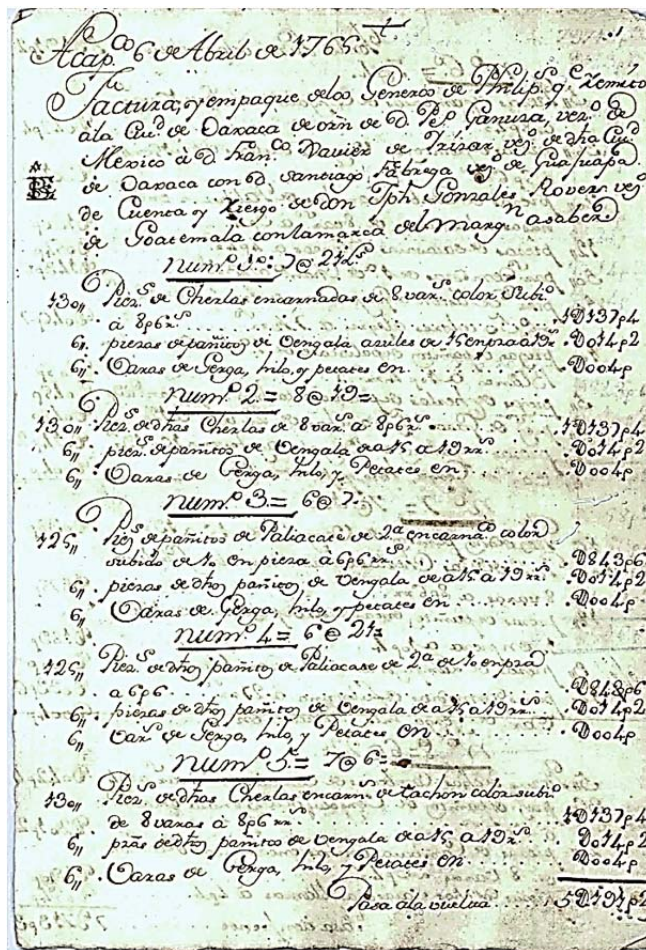 Acap.co 6 de Abril de 1765 .1
Factura, y empaque de los Generos de Philip.s q.e remito
a la Ciu.d de Oaxaca de orn de D. Ganuza, vez.o de
Mexico à D. Fran.co Xavier de Yrizar vez.o de dha Ciu.d
de Oaxaca con D. Santiago Fabrega vez.o de Guajuapa
de Cuenta y Riesgo de Don Jph Gonzales Rovers vez.o
de Goatemala con la marca del marg.n a saber
Num.o 1.o
130,, Piez.s de Cherlas encarnadas de 8 var.s color Subi.o
à 8p6 rr.s 1D137p4
6,, piezas de pañitos de Vengala azules de 15 en pza à 19 rr. D014p2
6,, Varas de Gerga, hilo, y petates en D004p
Num.o 2.= 8@19=
130,, Piez.s de dhas Cherlas de 8 var.s à 8p6 rr.s 1D137p4
6,, piez.s de pañitos de Vengala de a 15 a 19 rr.s D014p2
6,, Varas de Gerga, hilo, y Petates en D004p
Num.o 3.= 6@7.
125,, Piez.s de pañitos de Paliacate de 2.a encarna.co color
subido de 10 en pieza à 6p6 rr.s D843p6
6,, piezas de dhos pañitos de Vengala de a 15 à 19 rr.s D014p2
6,, Varas de Gerga, hilo, y petates en D004p
Num.o 4= 6@21=
125,, Piez.s de dhos pañitos de Paliacate de 2.a de 10 en pza
a 6p6 D843p6
6,, piezas de dhos pañitos de Vengala de a 15 a 19 rr.s D014p2
6,, Var.s de Gerga, hilo, y Petates en D004p
Num.o 5= 7@6=
130,, Piez.s de dhas Cherlas encarn.s de color subi.o
de 8 varas à 8p6 rr.s 1D137p4
6,, pzas de dhos pañitos de Vengala de a 15 a 19 rr.s D014p2
6,, Varas de Gerga, hilo, y Petates en D004p
Pasa a la vuelta 5D191p2